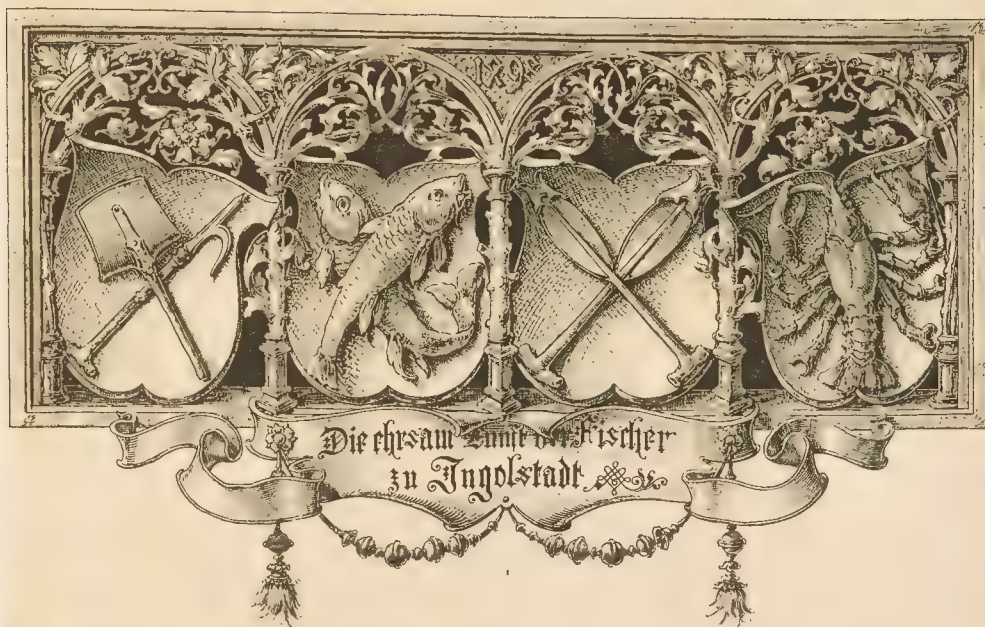 Die ehrsam Zunft der Fischer
zu Ingolstadt